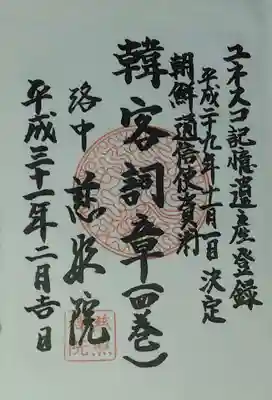 ユネスコ記憶遺産登録
平成二十九年十一月一日決定
朝鮮通信使資料
韓客詞章(四巻)
洛中 慈照院
平成三十一年二月吉日